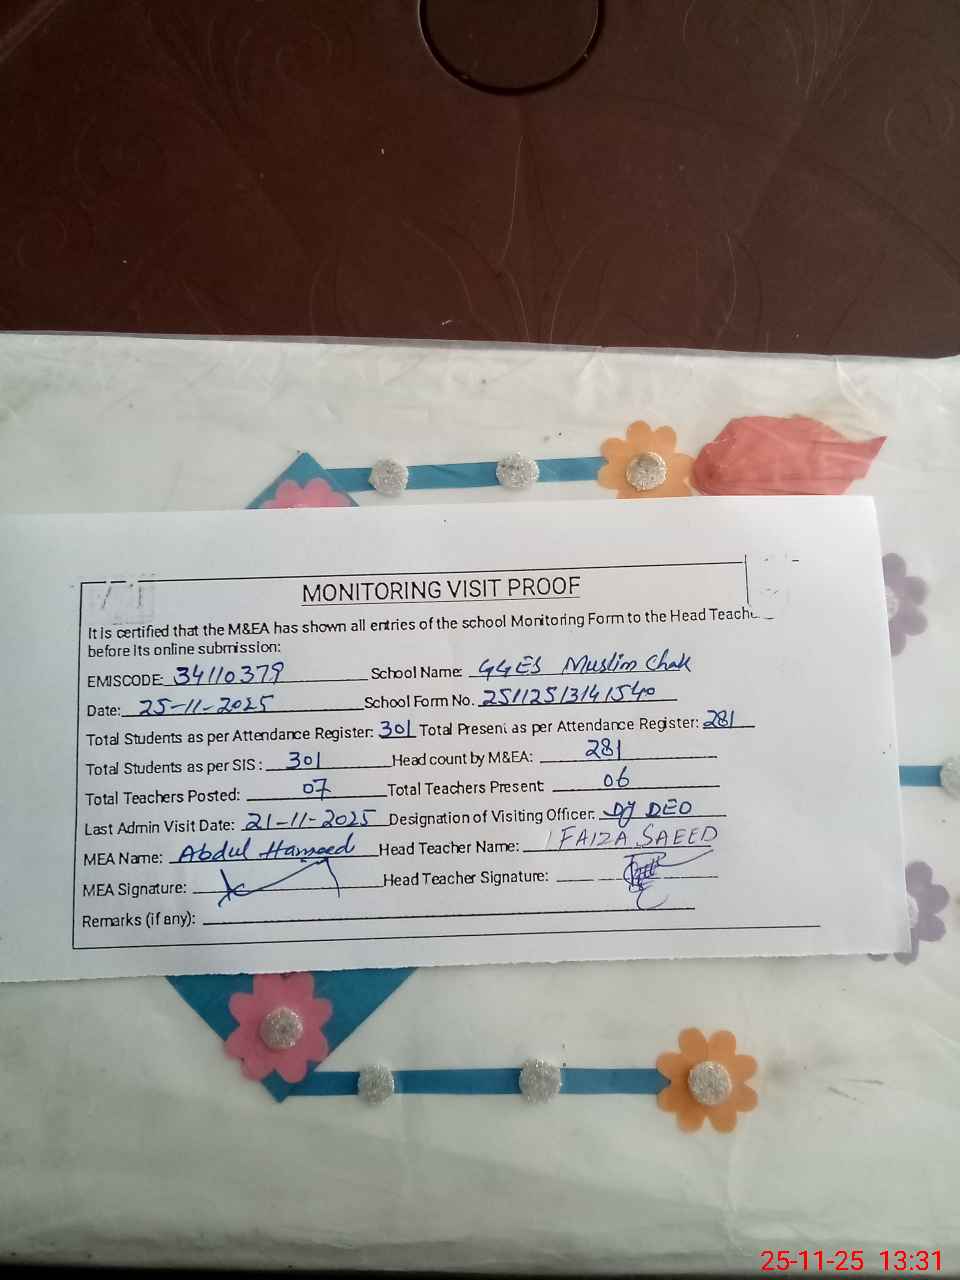 MONITORING VISIT PROOF
It is certified that the M&EA has shown all entries of the school Monitoring Form to the Head Teach
before its online submission:
EMISCODE: 34110379 School Name: GGES Muslim Chak
Date: 25-11-2025 School Form No. 25112513141540
Total Students as per Attendance Register: 301 Total Present as per Attendance Register: 281
Total Students as per SIS: 301 Head count by M&EA: 281
Total Teachers Posted: 07 Total Teachers Present: 06
Last Admin Visit Date: 21-11-2025 Designation of Visiting Officer: Dy DEO
MEA Name: Abdul Hameed Head Teacher Name: FAIZA SAEED
MEA Signature: Head Teacher Signature:
Remarks (if any):
25-11-25 13:31